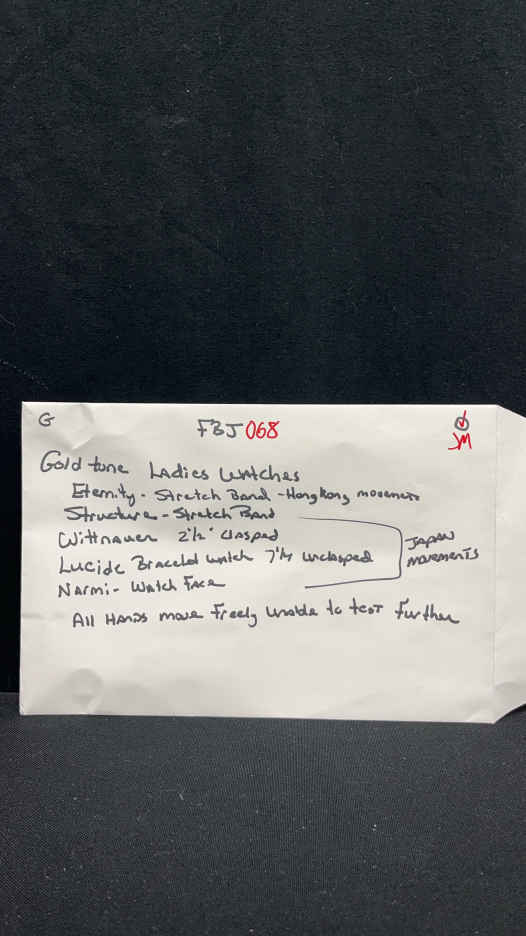 G
FBJ 068
JM
Gold tone Ladies Watches
Eternity - Stretch Band - Hong Kong movement
Structure - Stretch Band
Wittnauer 2½" Clasped
Lucide Bracelet Watch 7¼ unclasped
Narmi - Watch Face
JAPAN
movements
All Hands move freely unable to test further